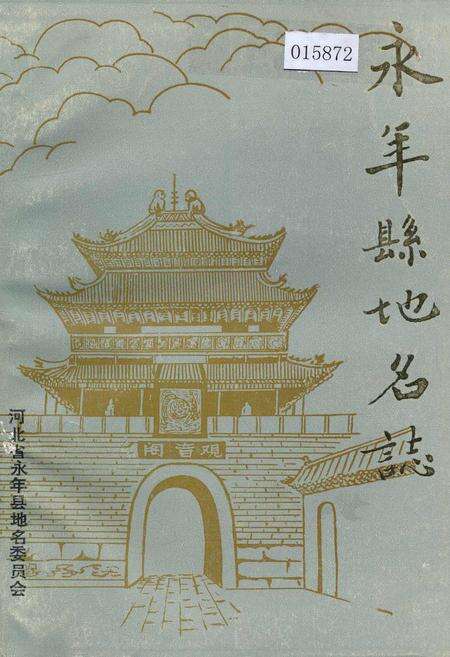 015872
永年縣地名誌
观音阁
河北省永年县地名委员会